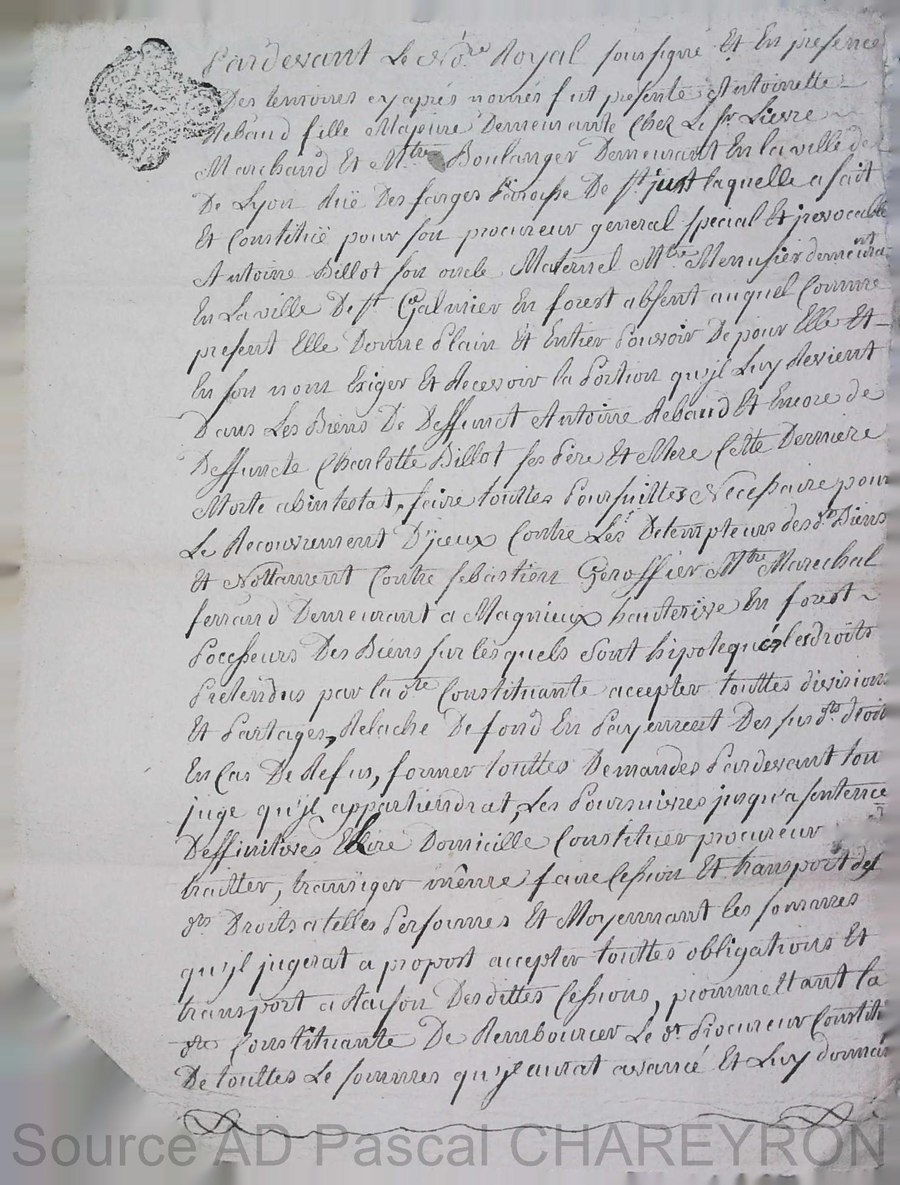 Pardevant Le No.re Royal soussigné Et En presence
Des temoins cy aprés només fut presente Antoinette
Rebaud fille Majeure Demeurante Chez Le sr Lievre
Marchand Et M.tre Boulanger Demeurant En la ville de
De Lyon Rüe Des farges Parroisse De st just laquelle a fait
Et Constitué pour son procureur general special Et jrevocable
Antoine Billot son oncle Maternel M.tre Menusier demeurant
En La ville De st Galmier En forest absent auquel Comme
present Elle Donne Plain Et Entier Pouvoir De pour Elle Et
En son nom Exiger Et Recevoir la Portion qu'jl Luy Revient
Dans Les Biens De Deffunct Antoine Rebaud Et Encore de
Deffuncte Charlotte Billot ses Pere Et Mere Cette Derniere
Morte abintestat, faire touttes Poursuittes Necessaire pour
Le Recouvrement D'jeux Contre Les Detempteurs des d.ts Biens
Et Nottament Contre sebastien Geroffier M.tre Marechal
ferrand Demeurant a Magnieux hauterive En forest
Possesseurs Des Biens sur lesquels sont hipotequés les droits
Pretendus par la d.tte Constituante accepter touttes divisions
Et Partages, Relache De fond En Payement Des sus d.ts droits
En Cas De Refus, former touttes Demandes Pardevant tou
juge qu'jl appartiendrat, Les Poursuivres jusqu'a sentence
Deffinitives Elire Domicille Constituer procureur
traitter, transiger même faire Cession Et transport des
d.ts Droits a telles Personnes Et Moyennant les sommes
qu'jl jugerat a propost accepter touttes obligations Et
transport a Raison Desdittes Cessions, promettant la
d.tte Constituante De Rembourcer Le d.t Procureur Constitué
De touttes Le sommes qu'jl aurat avancé Et Luy donner
Source AD Pascal CHAREYRON